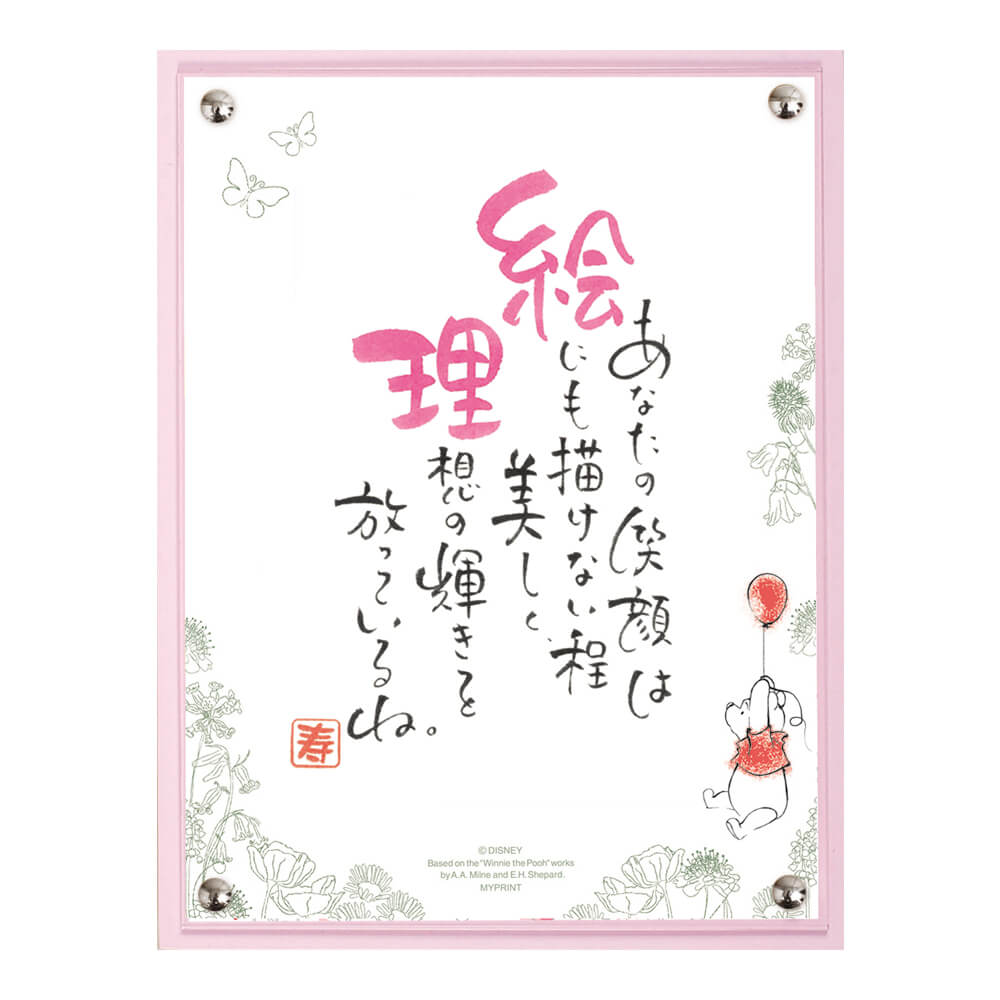 あなたの笑顔は
絵にも描けない程
美しく、
理想の輝きを
放っているね。
寿
© DISNEY
Based on the "Winnie the Pooh" works
by A.A. Milne and E.H. Shepard.
MYPRINT